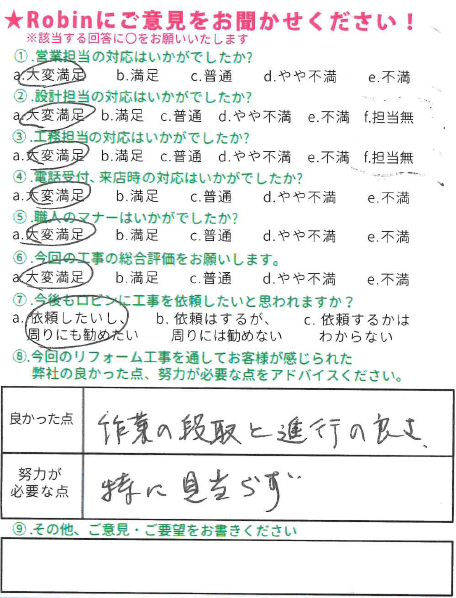 ★Robinにご意見をお聞かせください！
※該当する回答に〇をお願いいたします
①.営業担当の対応はいかがでしたか?
a.大変満足 b.満足 c.普通 d.やや不満 e.不満
②.設計担当の対応はいかがでしたか?
a.大変満足 b.満足 c.普通 d.やや不満 e.不満 f.担当無
③.工務担当の対応はいかがでしたか?
a.大変満足 b.満足 c.普通 d.やや不満 e.不満 f.担当無
④.電話受付、来店時の対応はいかがでしたか?
a.大変満足 b.満足 c.普通 d.やや不満 e.不満
⑤.職人のマナーはいかがでしたか?
a.大変満足 b.満足 c.普通 d.やや不満 e.不満
⑥.今回の工事の総合評価をお願いします。
a.大変満足 b.満足 c.普通 d.やや不満 e.不満
⑦.今後もロビンに工事を依頼したいと思われますか？
a. 依頼したいし、 b. 依頼はするが、 c. 依頼するかは
周りにも勧めたい 周りには勧めない わからない
⑧.今回のリフォーム工事を通してお客様が感じられた
弊社の良かった点、努力が必要な点をアドバイスください。
良かった点 作業の段取と進行の良さ、
努力が
必要な点 特に見当らず
⑨.その他、ご意見・ご要望をお書きください